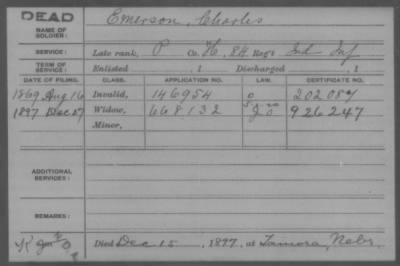 DEAD
NAME OF SOLDIER:
Emerson, Charles
SERVICE:
Late rank, P Co. H, 84 Reg't Ind Inf
TERM OF SERVICE:
Enlisted , 1 Discharged , 1
DATE OF FILING. CLASS. APPLICATION NO. LAW. CERTIFICATE NO.
1869 Aug 16 Invalid, 146954 202087
1897 Dec 27 Widow, 668,132 926247
Minor,
ADDITIONAL SERVICES:
REMARKS:
Died Dec 15, 1897, at Tamora, Nebr.